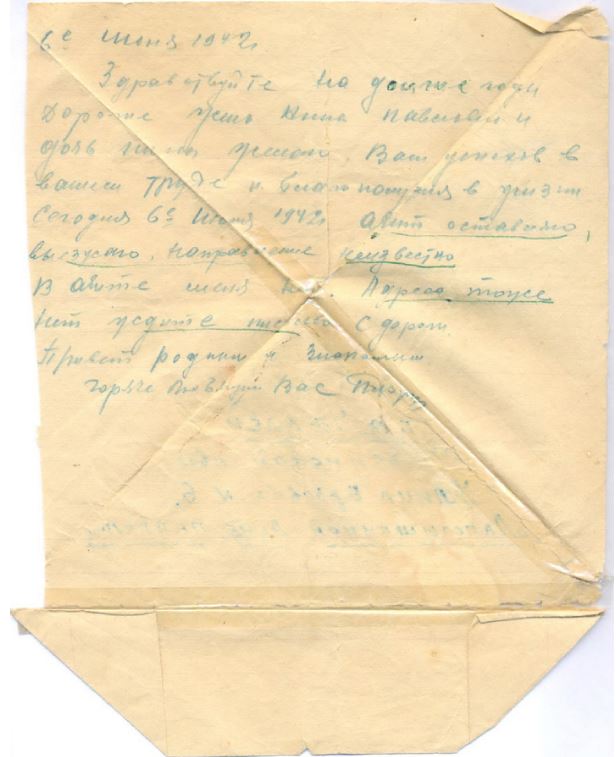 6го Июня 1942г
Здравствуйте на долгие годы
дорогие жена Анна Павловна и
дочь Вам успехов в
вашем труде и благополучия в жизни
Сегодня 6го Июня 1942г оставляю,
выезжаю, направление неизвестно
В меня нет. Адреса тоже
нет ждите письма с дороги.
Привет родным и знакомым
горячо любящий Вас